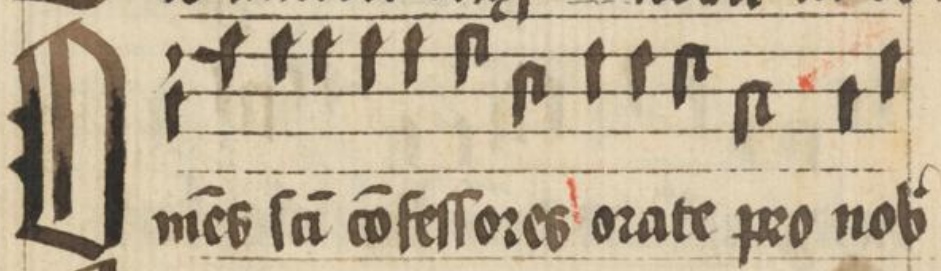 Omēs sc̄i cōfessores orate pro nob̄